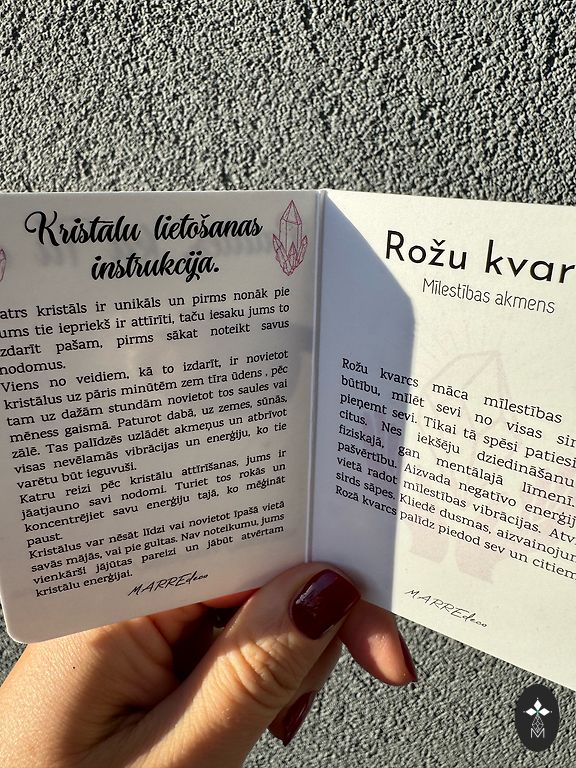 Kristālu lietošanas
instrukcija.
atrs kristāls ir unikāls un pirms nonāk pie
ums tie iepriekš ir attīrīti, taču iesaku jums to
zdarīt pašam, pirms sākat noteikt savus
nodomus.
Viens no veidiem, kā to izdarīt, ir novietot
kristālus uz pāris minūtēm zem tīra ūdens , pēc
tam uz dažām stundām novietot tos saules vai
mēness gaismā. Paturot dabā, uz zemes, sūnās,
zālē. Tas palīdzēs uzlādēt akmeņus un atbrīvot
visas nevēlamās vibrācijas un enerģiju, ko tie
varētu būt ieguvuši.
Katru reizi pēc kristālu attīrīšanas, jums ir
jāatjauno savi nodomi. Turiet tos rokās un
koncentrējiet savu enerģiju tajā, ko mēģināt
paust.
Kristālus var nēsāt līdzi vai novietot īpašā vietā
savās mājās, vai pie gultas. Nav noteikumu, jums
vienkārši jājūtas pareizi un jābūt atvērtam
kristālu enerģijai.
MARREdeco
Rožu kvar
Mīlestības akmens
Rožu kvarcs māca mīlestības
būtību, mīlēt sevi no visas sir
pieņemt sevi. Tikai tā spēsi patiesi
citus. Nes iekšēju dziedināšanu
fiziskajā, gan mentālajā līmenī.
pašvērtību. Aizvada negatīvo enerģij
vietā radot mīlestības vibrācijas. Atv
sirds sāpes. Kliedē dusmas, aizvainojum
Rozā kvarcs palīdz piedod sev un citiem
MARREdeco
M